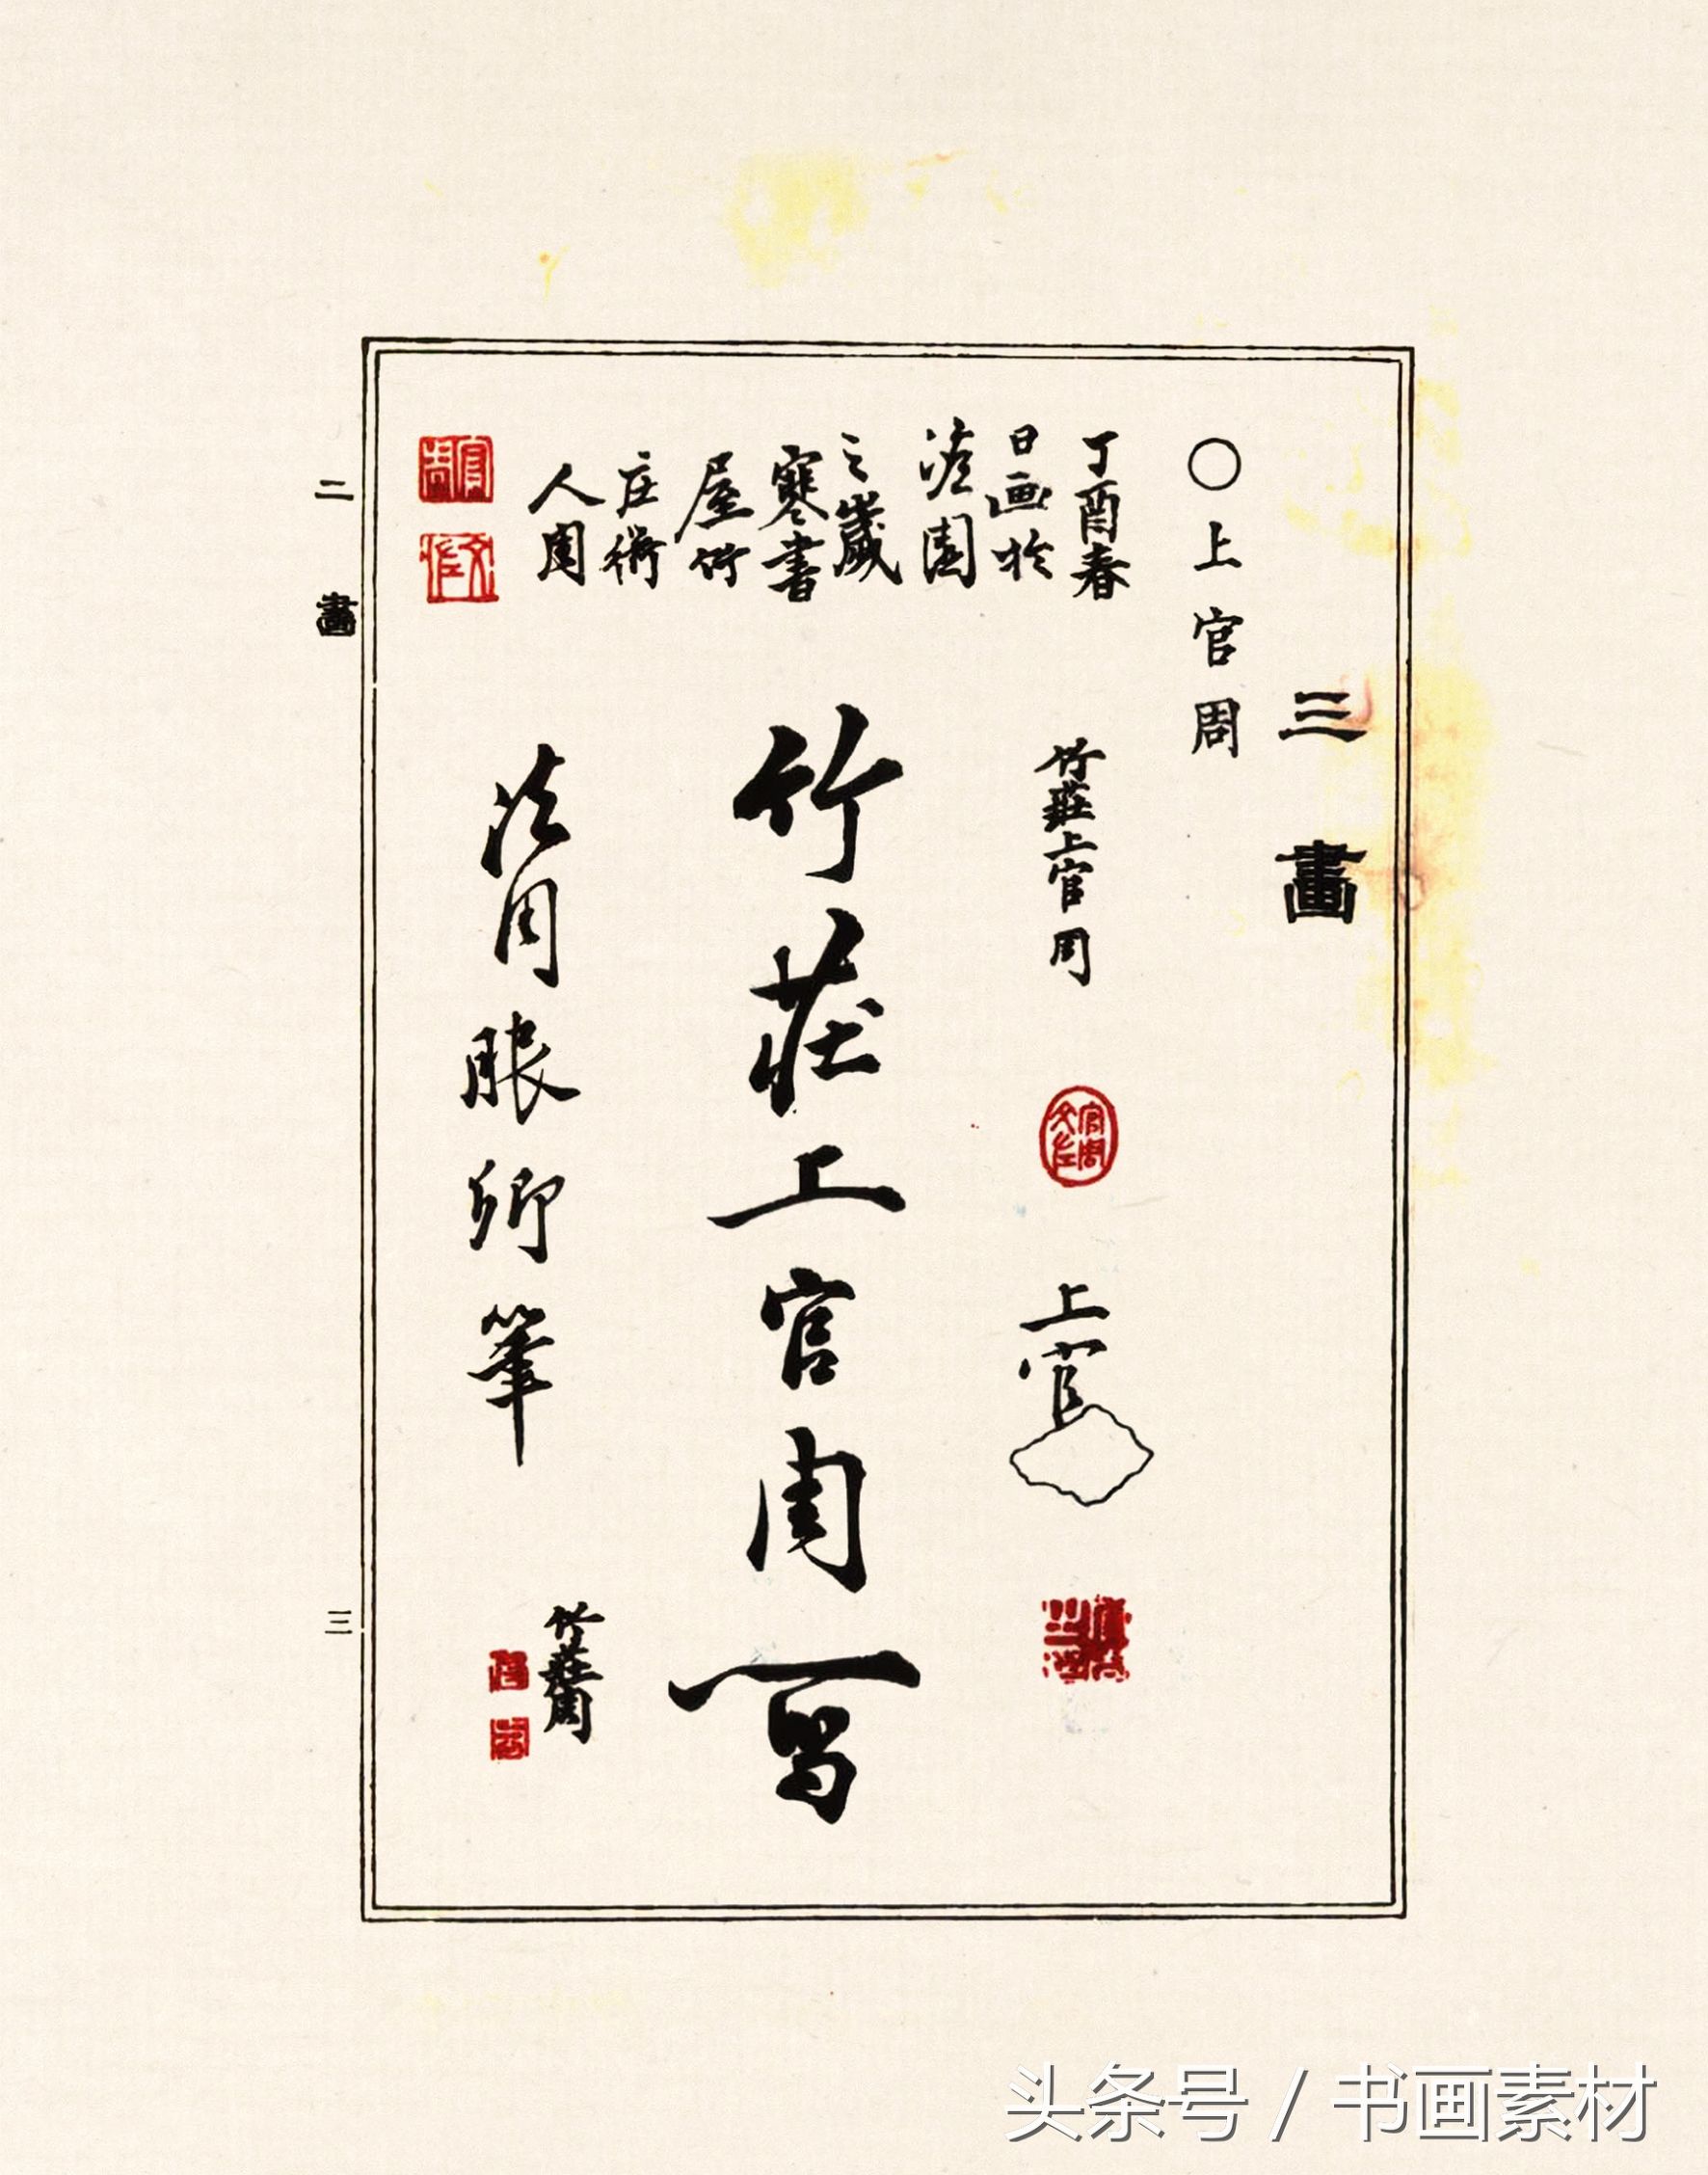 三畫
〇上官周
丁酉春
日画於
園
之歲
寒書
屋竹
庄
人周
竹莊上官周
上官
竹莊上官周写
法周眼卿筆
竹莊周
二畫
三
头条号 / 书画素材